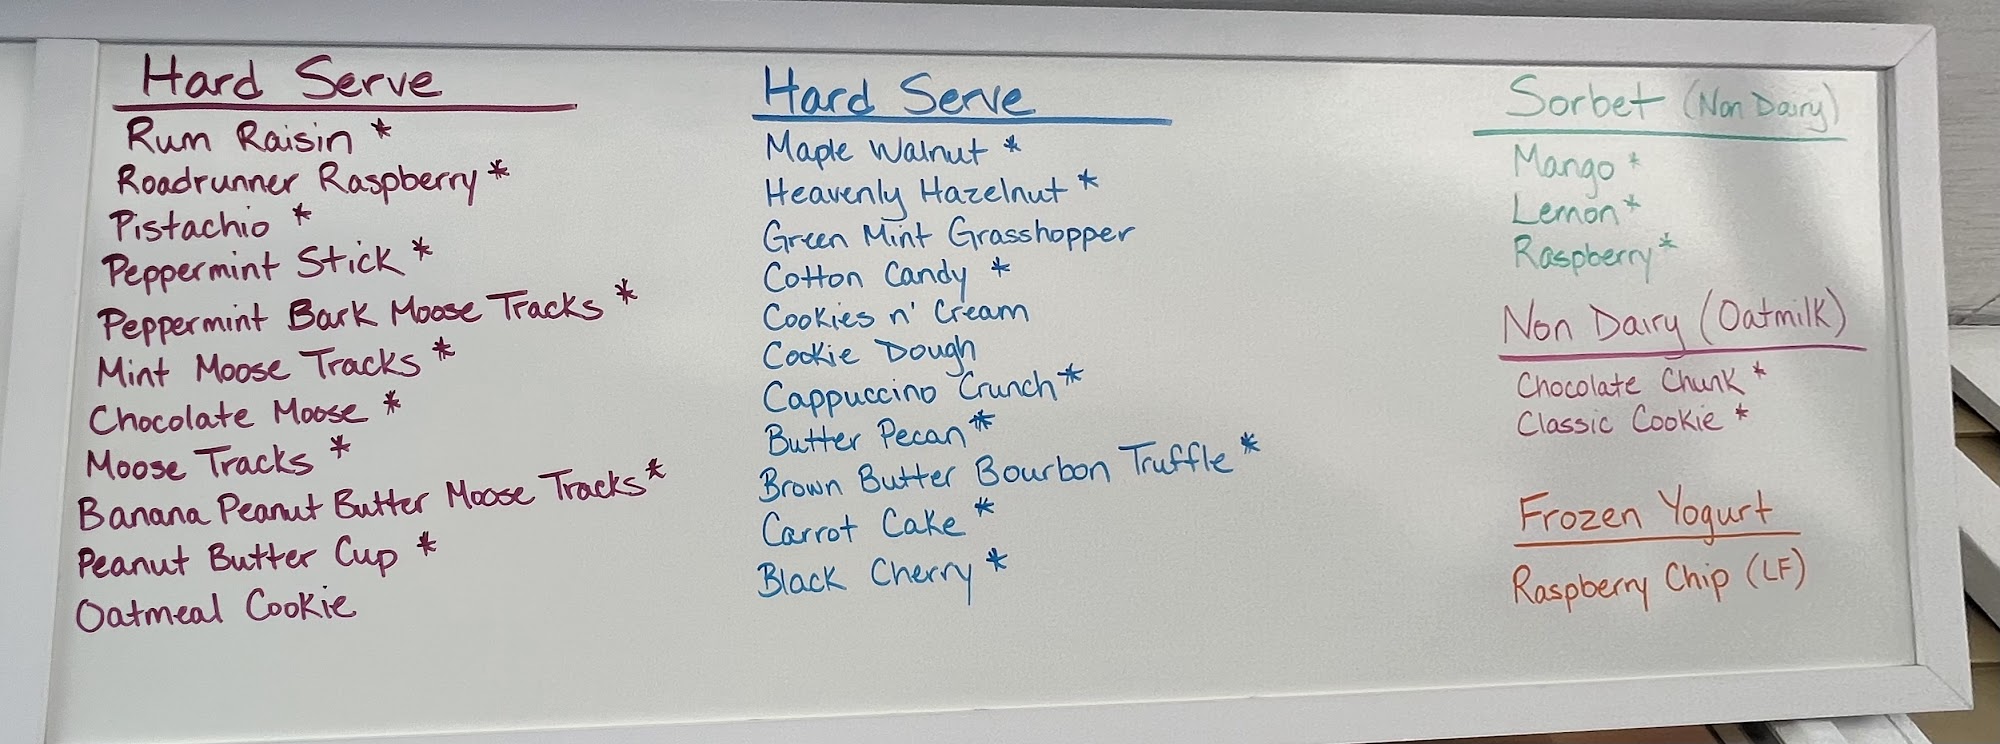 Hard Serve
Rum Raisin *
Roadrunner Raspberry *
Pistachio *
Peppermint Stick *
Peppermint Bark Moose Tracks *
Mint Moose Tracks *
Chocolate Moose *
Moose Tracks *
Banana Peanut Butter Moose Tracks *
Peanut Butter Cup *
Oatmeal Cookie
Hard Serve
Maple Walnut *
Heavenly Hazelnut *
Green Mint Grasshopper
Cotton Candy *
Cookies n' Cream
Cookie Dough
Cappuccino Crunch *
Butter Pecan *
Brown Butter Bourbon Truffle *
Carrot Cake *
Black Cherry *
Sorbet (Non Dairy)
Mango *
Lemon *
Raspberry *
Non Dairy (Oatmilk)
Chocolate Chunk *
Classic Cookie *
Frozen Yogurt
Raspberry Chip (LF)